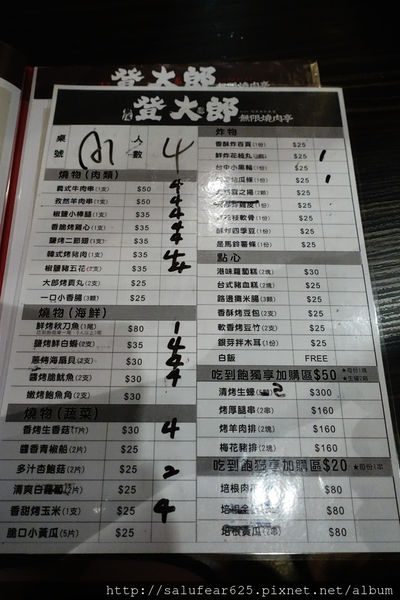 登太郎
登太郎 無限燒肉亭
桌號 A1 人數 4
燒物(肉類)
義式牛肉串(1支) $50 4
孜然羊肉串(1支) $50 4
椒鹽小棒腿(1支) $35 4
香脆烤雞心(1支) $35 4
鹽烤二節翅(1支) $35 4
韓式烤豬肉(2支) $35 4
椒鹽豬五花(2支) $35 4
大郎烤貢丸(2支) $25
一口小香腸(3顆) $25
燒物(海鮮)
鮮烤秋刀魚(1尾) $80 1
鹽烤鮮白蝦(2支) $35 4
蔥烤海扇貝(2支) $30 2
醬烤脆魷魚(2支) $30 4
嫩烤鮑魚角(2支) $30
燒物(蔬菜)
香烤生香菇(1片) $30 4
醬香青椒船(2片) $25
多汁杏鮑菇(2片) $25 2
香甜烤玉米(1支) $25 4
脆口小黃瓜(5片) $25
炸物
香酥炸百頁(1份) $25
鮮炸花枝丸 $25 1
台中小黑輪(1份) $25
瓜條(1份) $25 1
$25
$25
枝軟骨(1份) $25
酥炸四季豆(1份) $25
是馬鈴薯條(1份) $25
點心
港味蘿蔔糕(2塊) $30
台式豬血糕(2塊) $25
路邊攤米腸(3顆) $25
香酥烤豆包(2支) $25
軟香烤豆竹(2支) $25
銀芽拌木耳(1份) $25
白飯 FREE
吃到飽獨享加購區$50
清烤生蠔 $300
烤厚腿串(2串) $160
烤羊肉排(2塊) $160
梅花豬排(2塊) $160
吃到飽獨享加購區$20
培根肉 $80
培根金 $80
培根黃瓜 $80
http://salufear625.pixnet.net/album